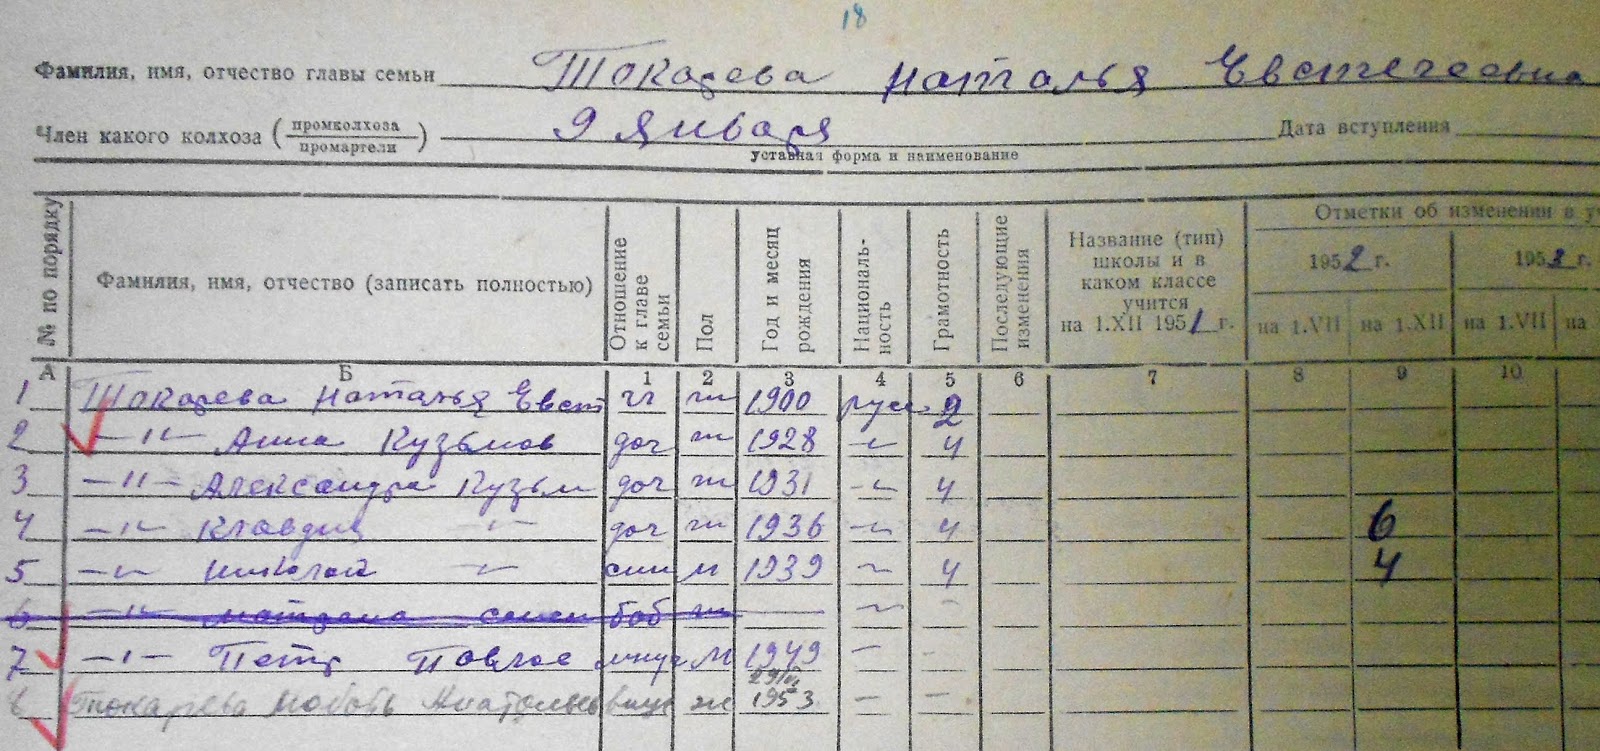 18
Фамилия, имя, отчество главы семьи Токарева Наталья Евстегеевна
Член какого колхоза (промколхоза промартели) 9 Января Дата вступления
уставная форма и наименование
№ по порядку Фамилия, имя, отчество (записать полностью) Отношение к главе семьи Пол Год и месяц рождения Националь- ность Грамотность Последующие изменения Название (тип) школы и в каком классе учится на 1.XII 1951 г. Отметки об изменении в у
1952 г. 1953 г.
на 1.VII на 1.XII на 1.VII на
А Б 1 2 3 4 5 6 7 8 9 10
1 Токарева Наталья Евст гл ж 1900 русс 2
2 —"— Анна Кузьмов доч ж 1928 —"— 4
3 —"— Александра Кузьм доч ж 1931 —"— 4
4 —"— Клавдия —"— доч ж 1936 —"— 4 6
5 —"— Николай —"— сын м 1939 —"— 4 4
6 —"— Матрона семен баб ж — —"— —
7 —"— Петр Павлов внук м 1949 — —
8 Токарева Любовь Анатольев внуч ж 1953 — —